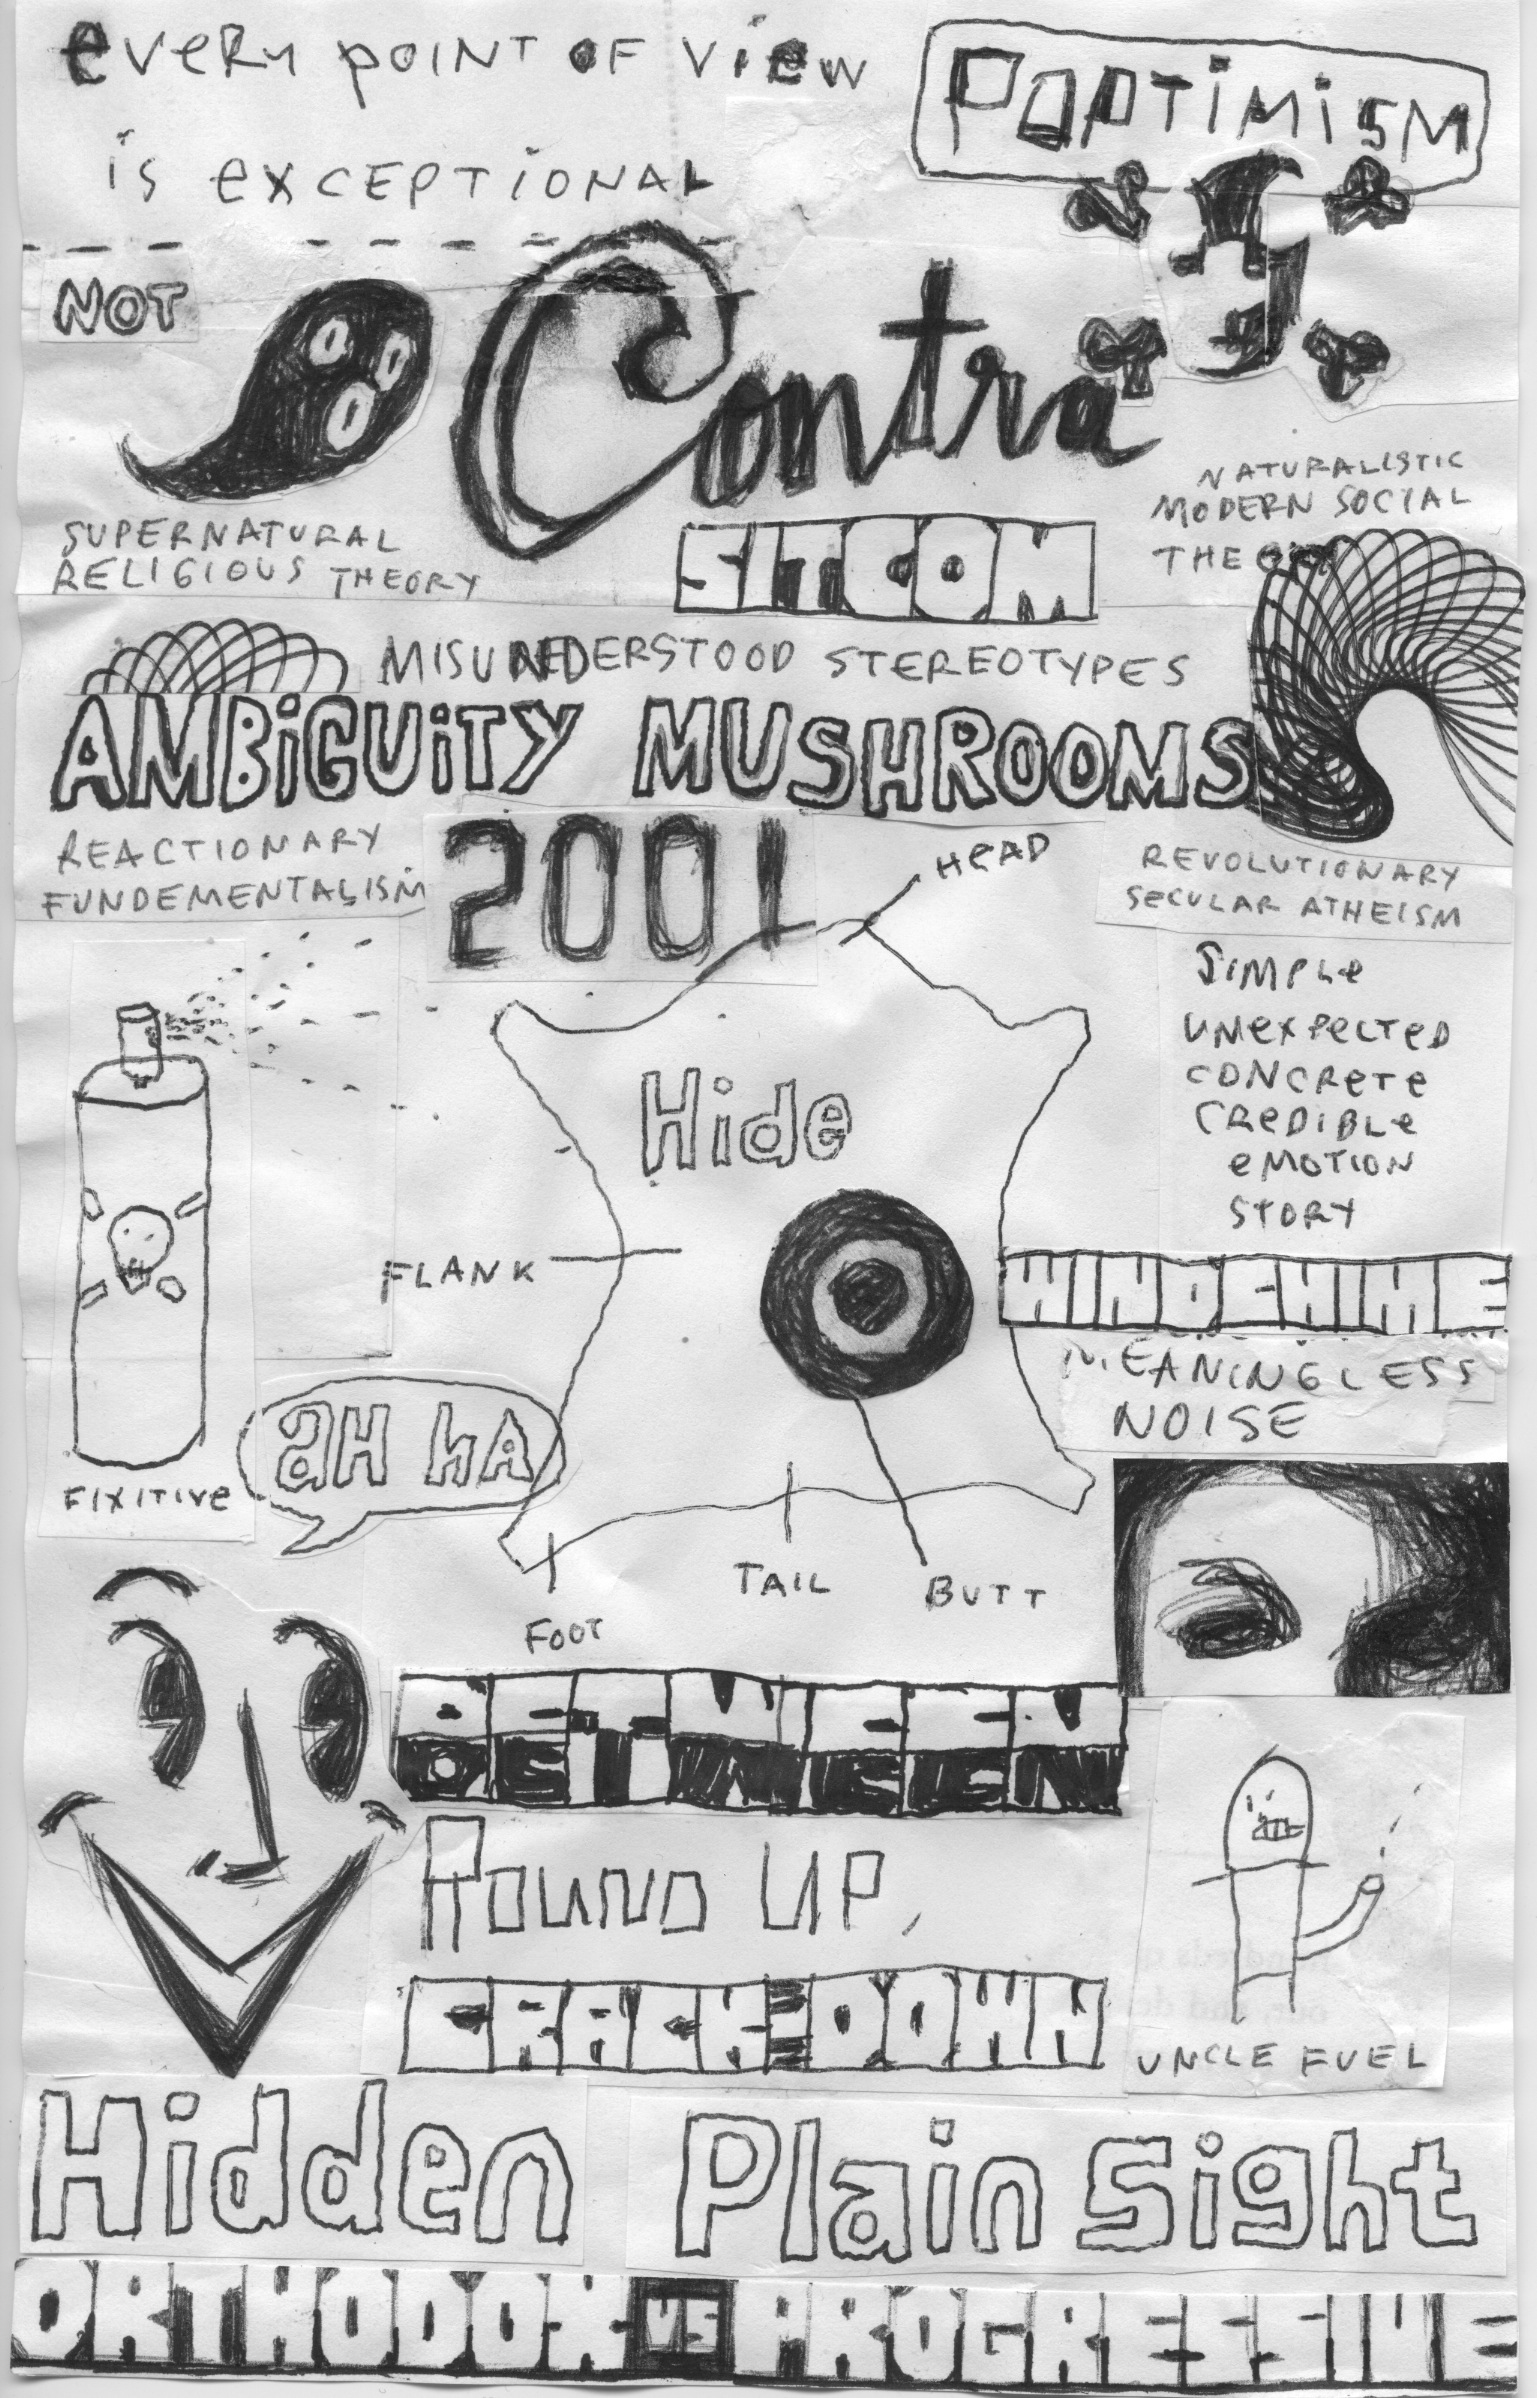 every point of view
is exceptional
POPTIMISM
NOT
Contra
SUPERNATURAL
RELIGIOUS THEORY
SITCOM
NATURALISTIC
MODERN SOCIAL
THEORY
MISUNDERSTOOD STEREOTYPES
AMBIGUITY MUSHROOMS
REACTIONARY
FUNDEMENTALISM
2001
HEAD
REVOLUTIONARY
SECULAR ATHEISM
SIMPLE
UNEXPECTED
CONCRETE
CREDIBLE
EMOTION
STORY
Hide
FLANK
WINDCHIME
MEANINGLESS
NOISE
aH hA
FIXITIVE
TAIL
BUTT
FOOT
BETWEEN
BETWEEN
ROUND UP,
CRACK DOWN
UNCLE FUEL
Hidden Plain Sight
ORTHODOX VS PROGRESSIVE